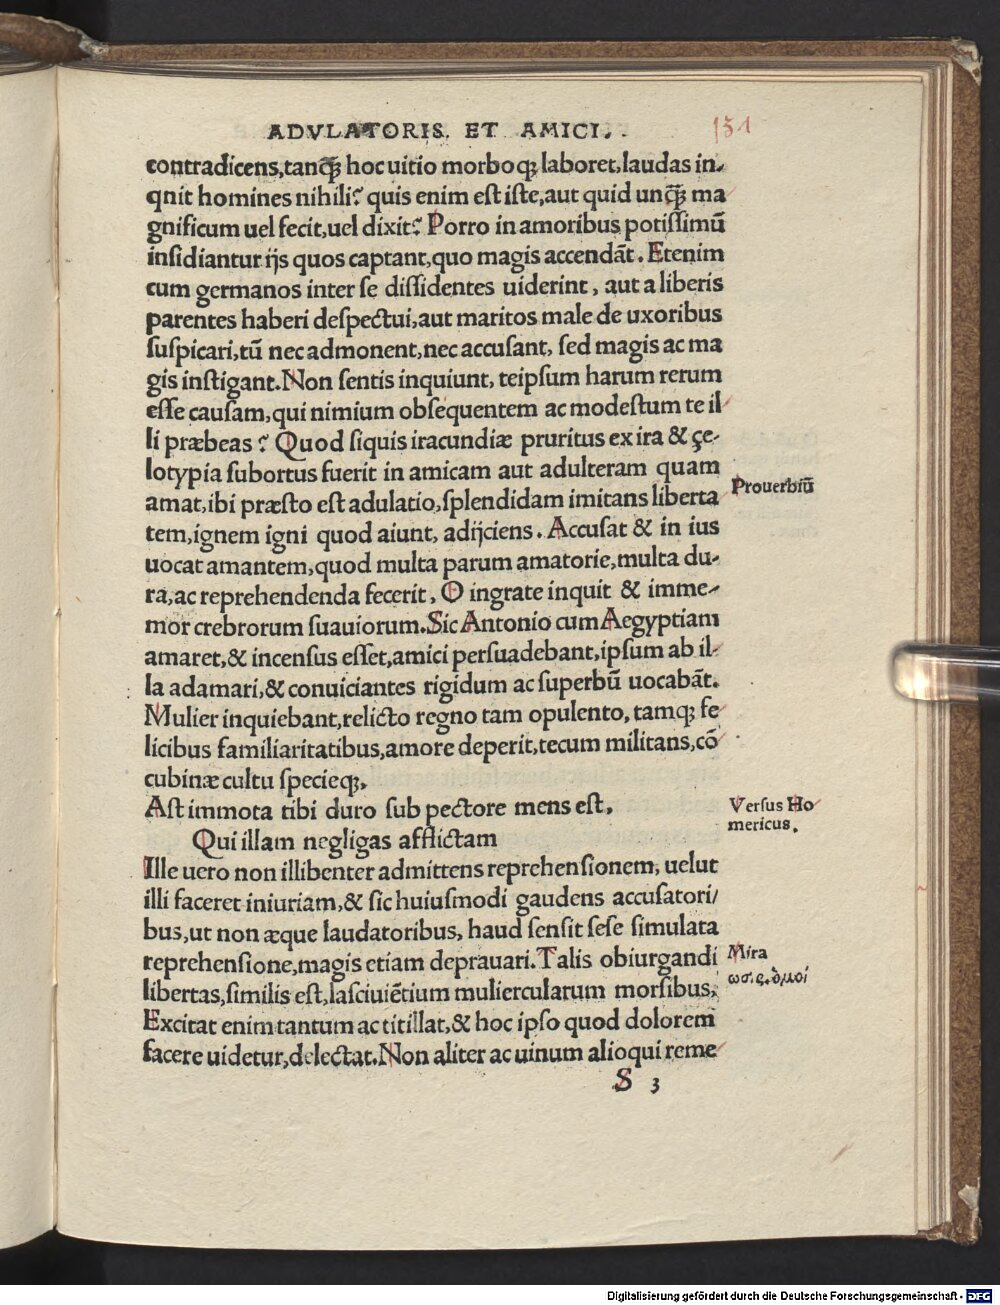 ADVLATORIS. ET AMICI.
151
contradicens,tanq̃ hoc uitio morboq; laboret,laudas in-
qnit homines nihili? quis enim est iste,aut quid unq̃ ma
gnificum uel fecit,uel dixit? Porro in amoribus potissimũ
insidiantur ijs quos captant,quo magis accendãt. Etenim
cum germanos inter se dissidentes uiderint, aut a liberis
parentes haberi despectui,aut maritos male de uxoribus
suspicari,tũ nec admonent,nec accusant, sed magis ac ma
gis instigant.Non sentis inquiunt, teipsum harum rerum
esse causam,qui nimium obsequentem ac modestum te il
li præbeas? Quod siquis iracundiæ pruritus ex ira & çe-
lotypia subortus fuerit in amicam aut adulteram quam
amat,ibi præsto est adulatio,splendidam imitans liberta
Prouerbiũ
tem,ignem igni quod aiunt, adijciens. Accusat & in ius
uocat amantem,quod multa parum amatorie,multa du-
ra,ac reprehendenda fecerit, O ingrate inquit & imme-
mor crebrorum suauiorum.Sic Antonio cum Aegyptiam
amaret,& incensus esset,amici persuadebant,ipsum ab il-
la adamari,& conuiciantes rigidum ac superbũ uocabãt.
Mulier inquiebant,relicto regno tam opulento, tamq; fe
licibus familiaritatibus,amore deperit,tecum militans,cõ
cubinæ cultu specieq;.
Ast immota tibi duro sub pectore mens est.
Versus Ho
mericus.
Qui illam negligas afflictam
Ille uero non illibenter admittens reprehensionem, uelut
illi faceret iniuriam,& sic huiusmodi gaudens accusatori/
bus,ut non æque laudatoribus, haud sensit sese simulata
reprehensione,magis etiam deprauari.Talis obiurgandi
Mira
libertas,similis est,lasciuiẽtium muliercularum morsibus.
Excitat enim tantum ac titillat,& hoc ipso quod dolorem
facere uidetur,delectat.Non aliter ac uinum alioqui reme
S 3
Digitalisierung gefördert durch die Deutsche Forschungsgemeinschaft - DFG